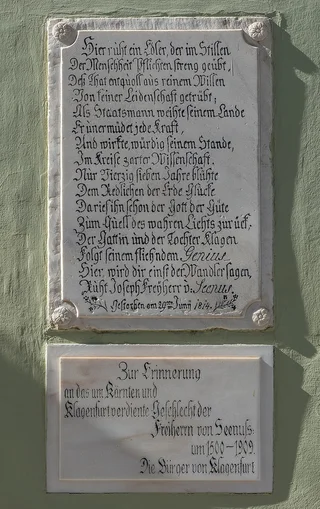 Hier ruht ein Edler, der im Stillen
Der Menschheit Pflichten streng geübt,
Deß That entquoll aus reinem Willen
Von keiner Leidenschaft getrübt;
Als Staatsmann weihte seinem Lande
Er unermüdet jede Kraft,
Und wirkte, würdig seinem Stande,
Im Kreise zarter Wissenschaft.
Nur Vierzig sieben Jahre blühte
Dem Redlichen der Erde Glücke
Da rief ihn schon der Gott der Güte
Zum Quell des wahren Lichts zurück,
Der Gattin und der Tochter Klagen
Folgt seinem fliehndem Genius
Hier, wird dir einst der Wandler sagen,
Ruht Joseph Freyherr v: Seenus.
Gestorben am 29ten Juny 1814.
Zur Erinnerung
an das um Kärnten und
Klagenfurt verdiente Geschlecht der
Freiherren von Seenuss.
um 1500–1909.
Die Bürger von Klagenfurt